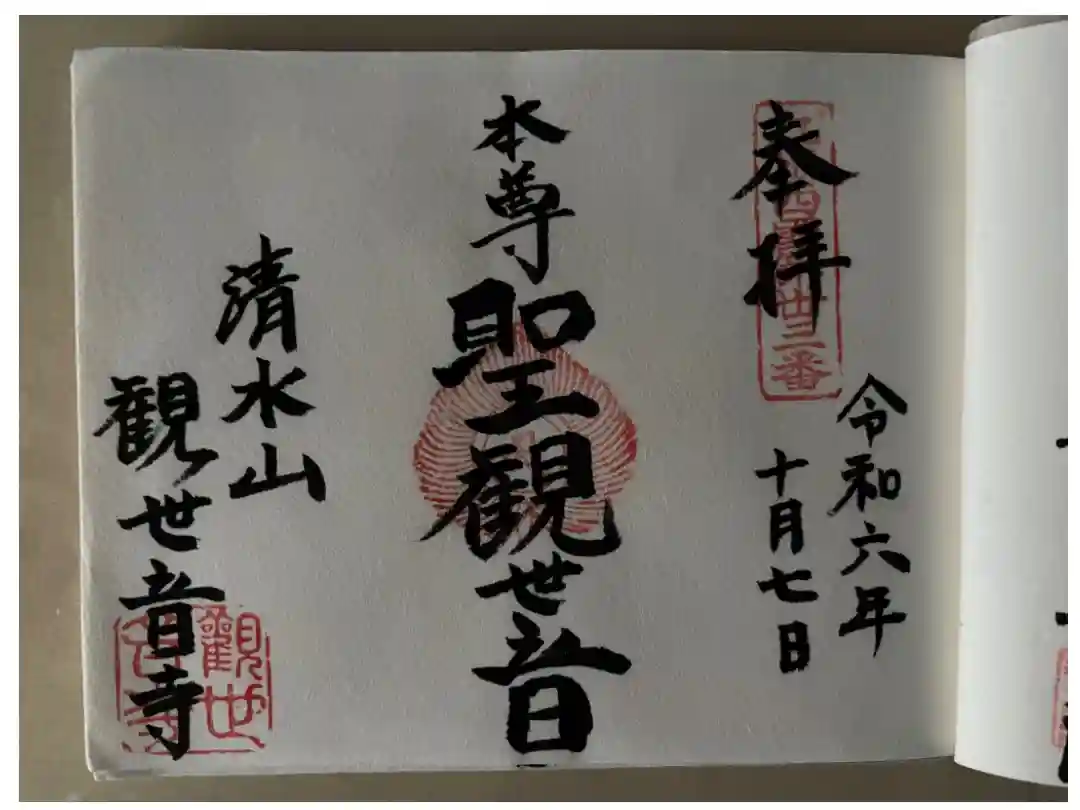 奉拝
令和六年
十月七日
本尊
聖観世音
清水山
観世音寺
廿三番
観世音寺